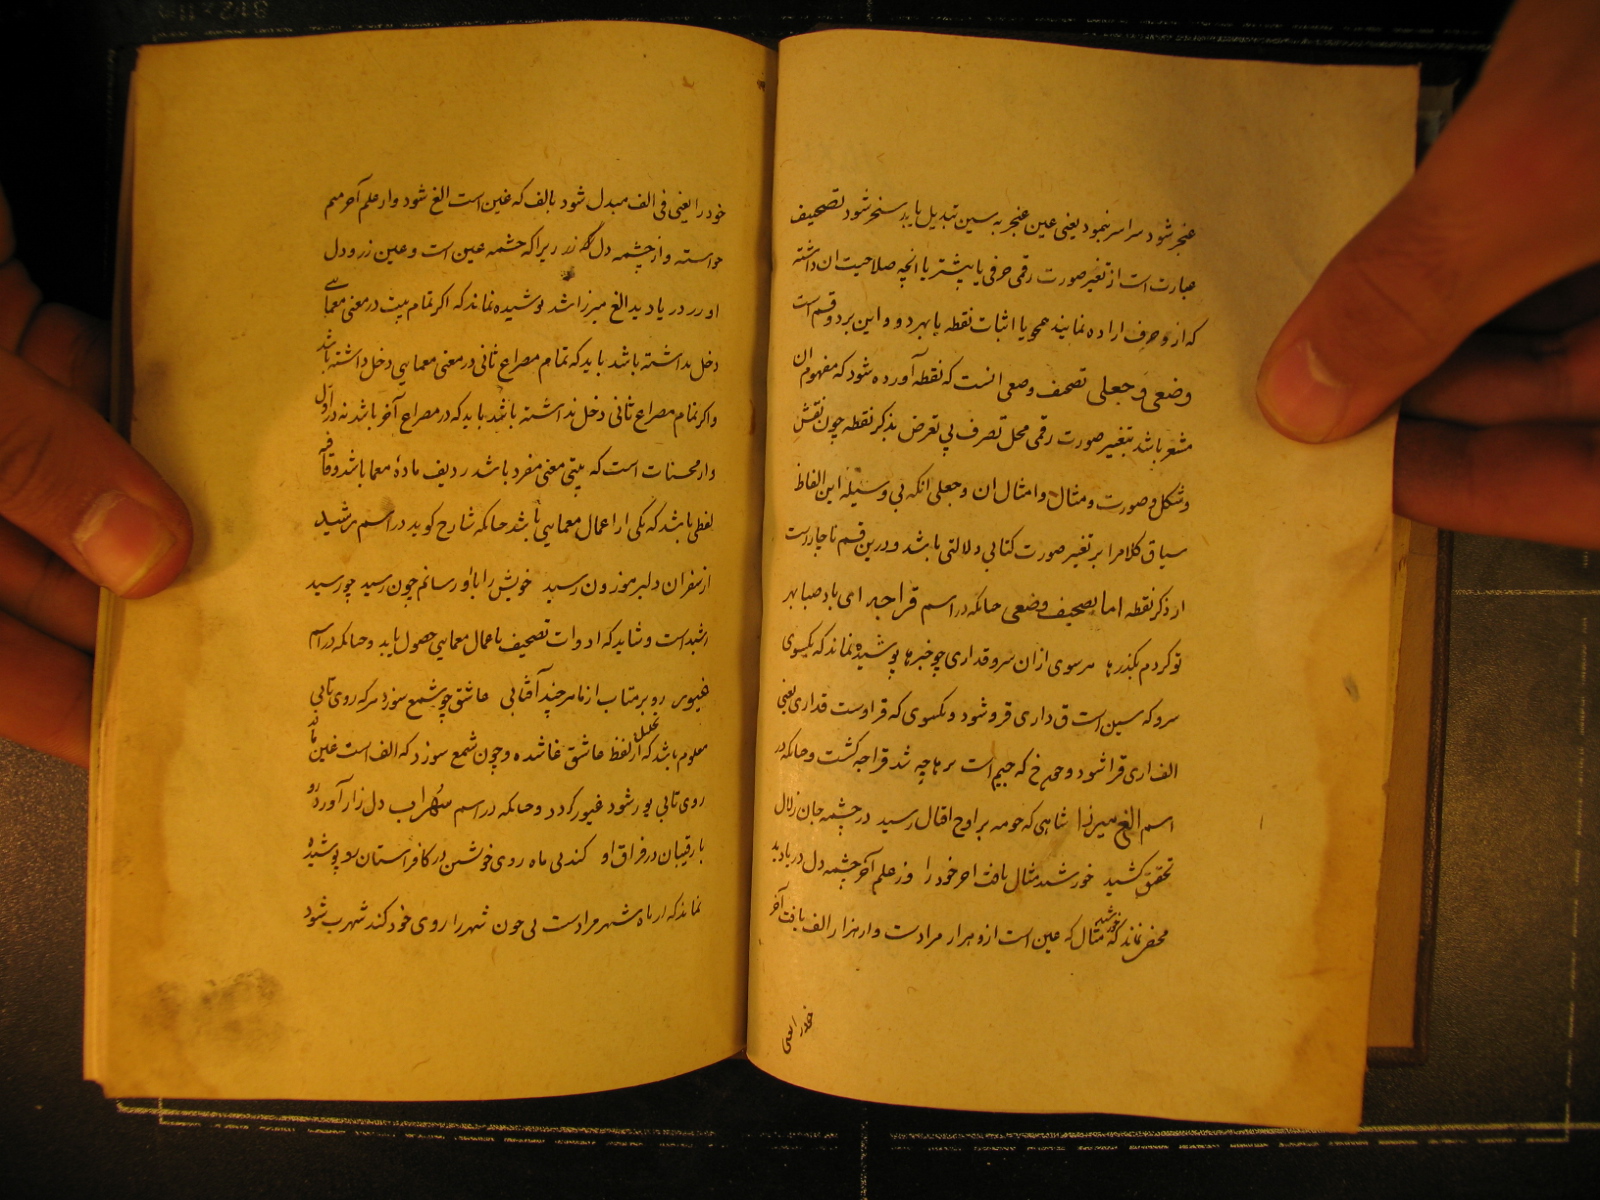 عنجر شود سراسر بنمود یعنی عین عنجر به سین تبدیل یابد سنجر شود تصحیف
عبارت است از تغیر صورت رقمی حرفی یا بیشتر یا انچه صلاحیت ان داشته
که از و حرف اراده نمایند بمحو یا اثبات نقطه یا بهر دو و این بر دو قسم است
وضعی و جعلی تصحیف وضعی انست که نقطه آورده شود که مفهوم ان
مشعر باشد بتغیر صورت رقمی محل تصرف بی تعرض بذکر نقطه چون نقش
و شکل و صورت و مثال و امثال ان و جعلی انکه بی وسیله این الفاظ
سیاق کلام را بر تغیر صورت کتابی دلالتی باشد و درین قسم ناچار است
از ذکر نقطه اما تصحیف وضعی چنانکه در اسم قراجه ای باد صبا بهر
تو کردم بگذرها هر سوی ازان سرو قد اری چو خبرها پوشیده نماند که یکسوی
سرو که سین است ق داری قرو شود و یکسوی که قراوست قد اری یعنی
الف اری قرا شود و چو خ که جیم است برها چه شد قراجه گشت و چنانکه در
اسم الغ میرزا شاهی که چو مه بر اوج اقبال رسید در چشمه جان زلال
تحقیق کشید خورشید مثال یافت اخر خود را وز علم آخر چشمه دل دریا دید
مخفی نماند که خورشید مثال که عین است ازو هزار مرادست و از هزار الف یافت آخر
خود را یعنی
خود را یعنی فی الف مبدل شود بالف که غین است الغ شود و از علم آخر میم
خواسته و از چشمه دل که زر زیرا که چشمه عین است و عین زر و دل
او رر در یا دید الغ میرزا شد پوشیده نماند که اکر تمام بیت در معنی معمایی
دخل نداشته باشد باید که تمام مصراع ثانی در معنی معمایی دخل داشته باشد
واکر تمام مصراع ثانی دخل نداشته باشد باید که در مصراع آخر باشد نه در اول
و از محسنات است که بیتی معنی مفرد باشد ردیف ماده معما باشد و قافیه
لفظی باشد که یکی از اعمال معمایی باشد چنانکه شارح کوید در اسم رشید
از سفر ان دلبر موزون رسید خویش را با او رسانم چون رسید چو رسید
رشید است و شاید که ادوات تصحیف باعمال معمایی حصول یابد و چنانکه در اسم
غیور رو بر متاب از ما هر چند آفتابی عاشق چو شمع سوزد هر که روی تابی
معلوم باشد که از تحلیل لفظ عاشق غا شده و چون شمع سوزد که الف است غین ماند
روی تابی یور شود غیور کردد و چنانکه در اسم سهراب دل زار آورد رو
با رقیبان در فراق او کند بی ماه روی خویشتن در کافرستان رو پوشیده
نماند که از ماه شهر مرادست بی چون شهر را روی خود کند شهرب شود